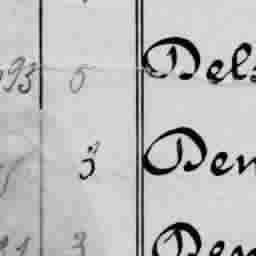 93 5 Dels
3 Den
3 Den